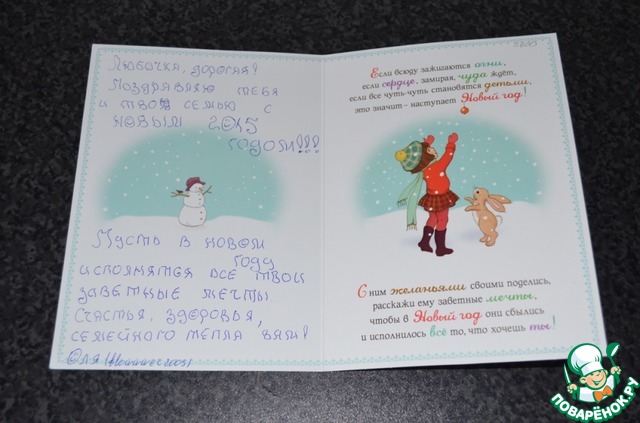 Любочка, дорогая!
Поздравляю тебя
и твою семью с
новым 2015
годом!!!
Пусть в новом
году
исполнятся все твои
заветные мечты
Счастья, здоровья,
семейного тепла вам!
Оля
Если всюду зажигаются огни,
если сердце, замирая, чуда ждёт,
если все чуть-чуть становятся детьми,
это значит – наступает Новый год!
С ним желаньями своими поделись,
расскажи ему заветные мечты,
чтобы в Новый год они сбылись
и исполнилось всё то, что хочешь ты!
ПОВАРЁНОК.РУ